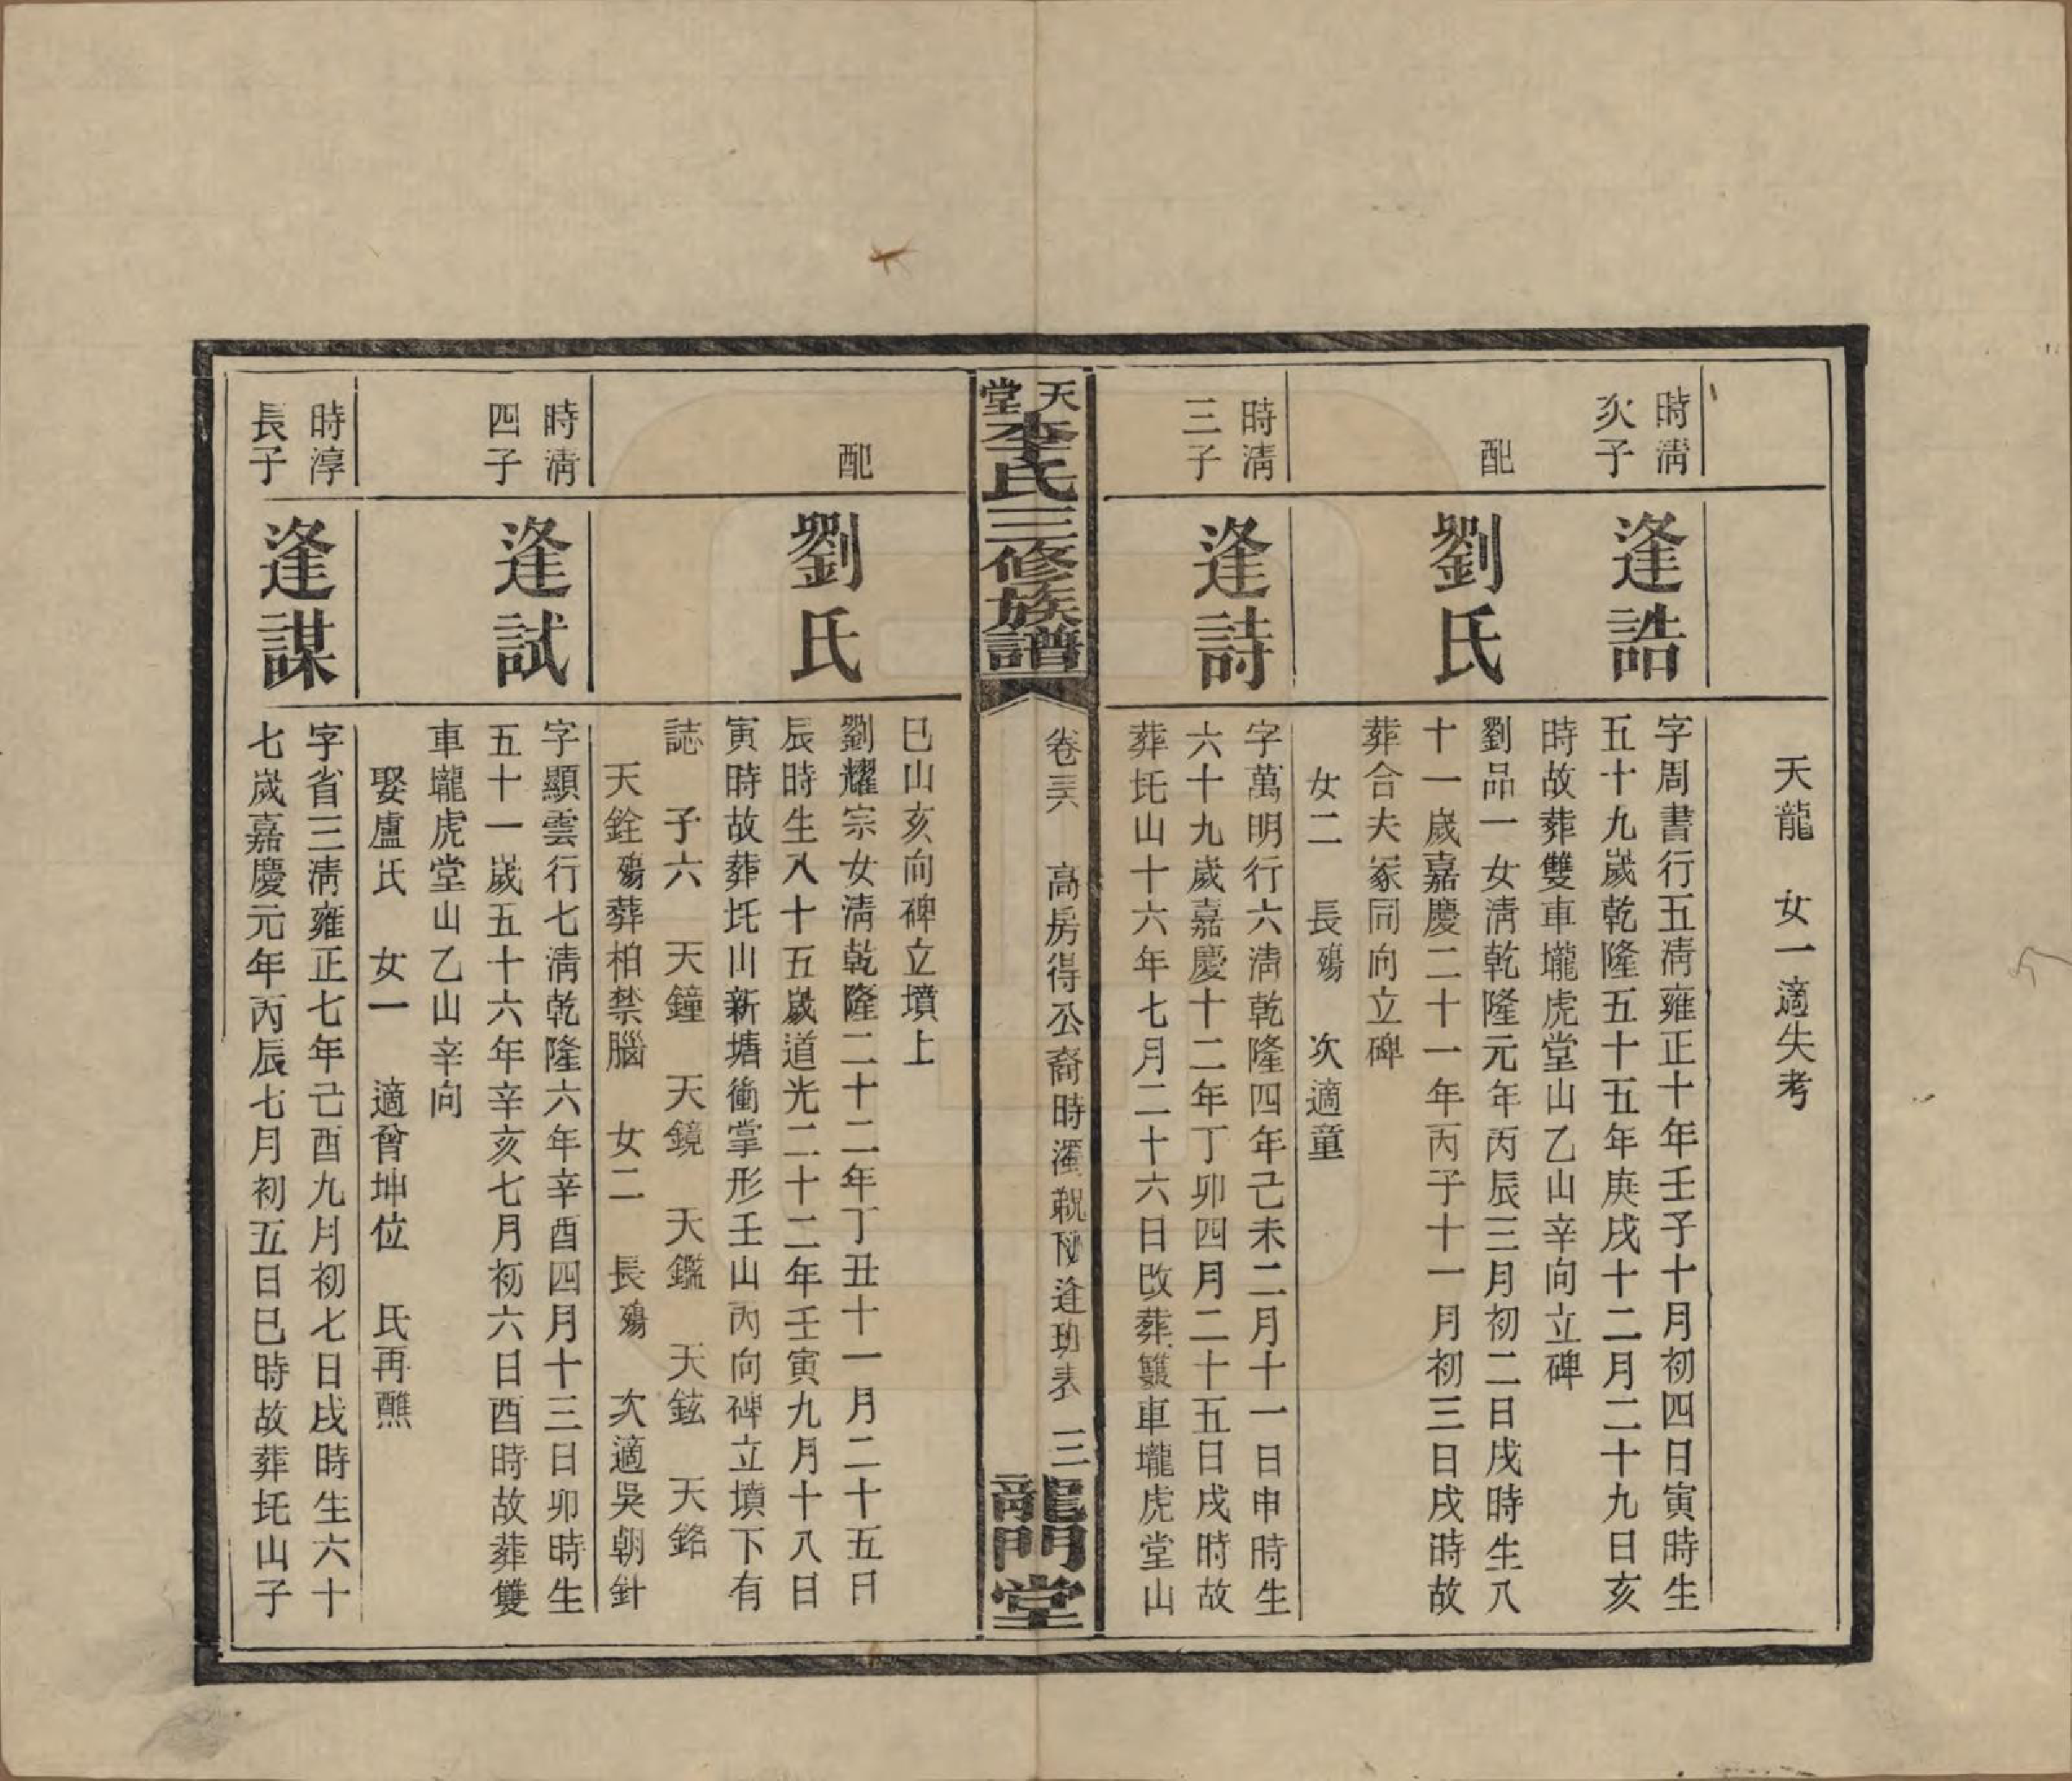 天龍　女一適失考
時淸
次子
逢誥
字周書行五淸雍正十年壬子十月初四日寅時生
五十九歲乾隆五十五年庚戌十二月二十九日亥
時故葬雙車壠虎堂山乙山辛向立碑
配
劉氏
劉品一女淸乾隆元年丙辰三月初二日戌時生八
十一歲嘉慶二十一年丙子十一月初三日戌時故
葬合夫冢同向立碑
女二　長殤　次適童
時淸
三子
逢詩
字萬明行六淸乾隆四年己未二月十一日申時生
六十九歲嘉慶十二年丁卯四月二十五日戌時故
葬圫山十六年七月二十六日改葬雙車壠虎堂山
天堂李氏三修族譜
卷三六　高房得公裔時濁親陊逢班表　三
龍門堂
巳山亥向碑立墳上
配
劉氏
劉耀宗女淸乾隆二十二年丁丑十一月二十五日
辰時生八十五歲道光二十二年壬寅九月十八日
寅時故葬圫山新塘衝掌形壬山丙向碑立墳下有
誌　子六　天鐘　天鏡　天鑑　天鉉　天鉻
天銓殤葬柏禁腦　女二　長殤　次適吳朝針
時淸
四子
逢試
字顯雲行七淸乾隆六年辛酉四月十三日卯時生
五十一歲五十六年辛亥七月初六日酉時故葬雙
車壠虎堂山乙山辛向
娶盧氏　女一　適曾坤位　氏再醮
時淳
長子
逢謀
字省三淸雍正七年己酉九月初七日戌時生六十
七歲嘉慶元年丙辰七月初五日巳時故葬圫山子